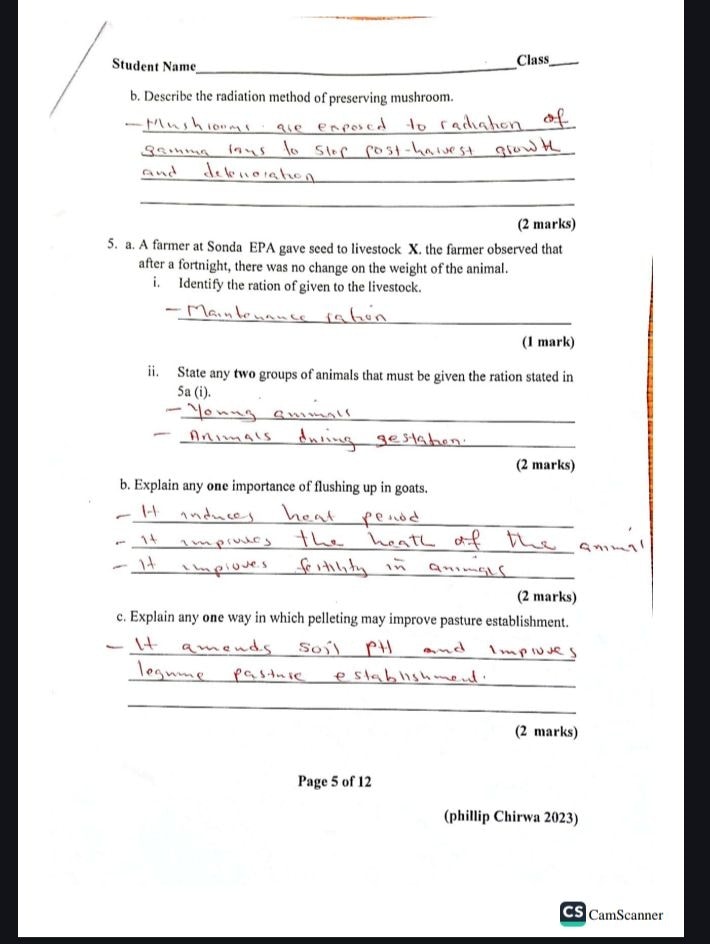 Student Name____ Class____
b. Describe the radiation method of preserving mushroom.
- Mushrooms are exposed to radiation of
gamma rays to stop post-harvest growth
and deterioration
(2 marks)
5. a. A farmer at Sonda EPA gave seed to livestock X. the farmer observed that
after a fortnight, there was no change on the weight of the animal.
i. Identify the ration of given to the livestock.
- Maintenance ration
(1 mark)
ii. State any two groups of animals that must be given the ration stated in
5a (i).
- Young animals
- Animals during gestation.
(2 marks)
b. Explain any one importance of flushing up in goats.
- It induces heat period
- It improves the heath of the animal
- It improves fertility in animals
(2 marks)
c. Explain any one way in which pelleting may improve pasture establishment.
- It amends soil PH and improves
legume pasture establishment.
(2 marks)
Page 5 of 12
(phillip Chirwa 2023)
CS CamScanner